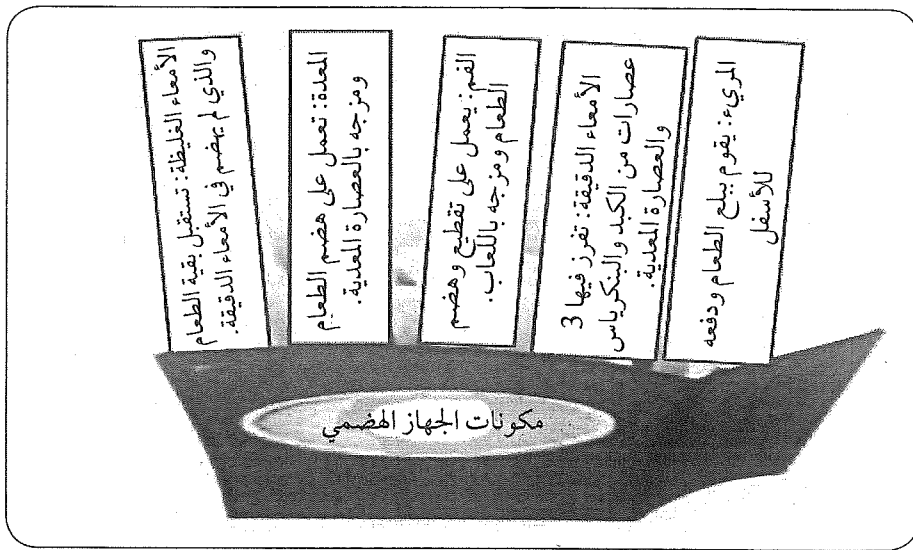 المريء: يقوم ببلع الطعام ودفعه
للأسفل
الأمعاء الدقيقة: تفرز فيها 3
عصارات من الكبد والبنكرياس
والعصارة المعدية.
الفم: يعمل على تقطيع وهضم
الطعام ومزجه باللعاب.
المعدة: تعمل على هضم الطعام
ومزجه بالعصارة المعدية.
الأمعاء الغليظة: تستقبل بقية الطعام
والذي لم يهضم في الأمعاء الدقيقة.
مكونات الجهاز الهضمي